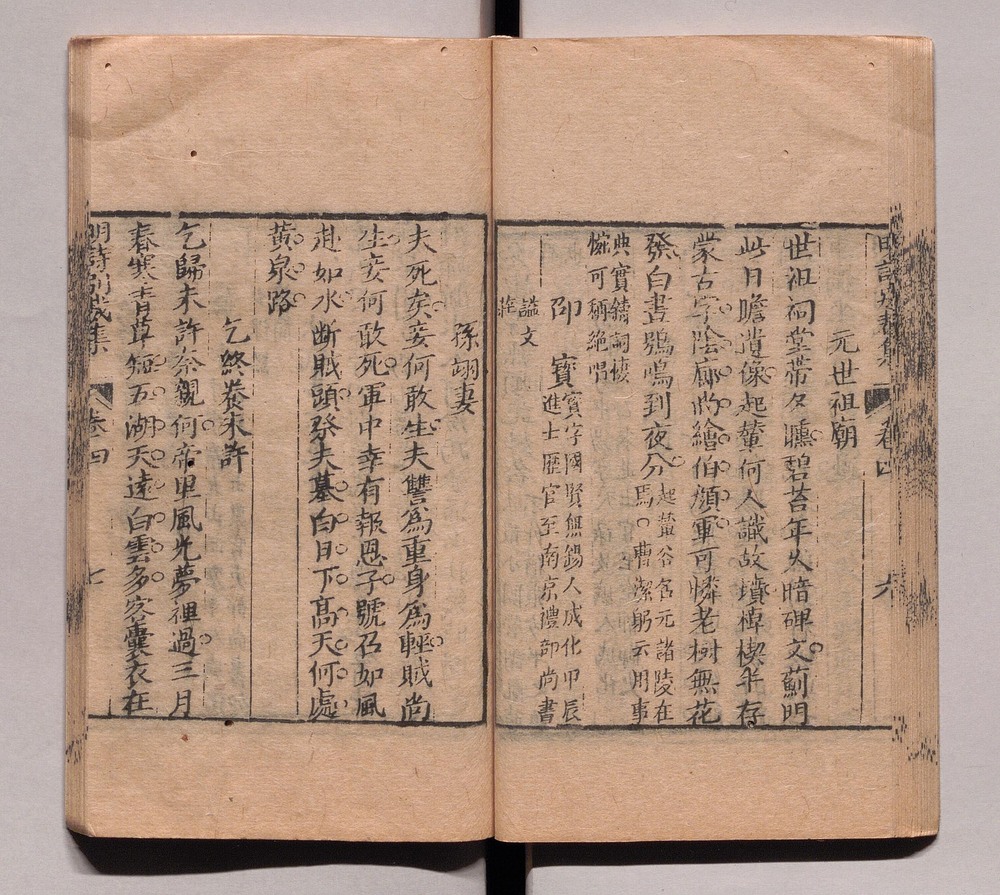 明詩別裁集 卷四 六
元世祖廟
世祖祠堂帶夕曛碧苔年久暗碑文薊門
此日瞻遺像起輦何人識故墳楱楔半存
蒙古字陰廊尚繪伯顏軍可憐老樹無花
發白晝鴞鳴到夜分起輦谷元諸陵在
焉○曹潔躬云用事
典實鑄詞悽
惋可稱絕唱
邵寶寶字國賢無錫人成化甲辰
進士歷官至南京禮部尚書
謚文
莊
孫翊妻
夫死矣妾何敢生夫讐爲重身爲輕賊尚
生妾何敢死軍中幸有報恩子號召如風
赴如水斷賊頭祭夫墓白日下高天何處
黃泉路
乞終養未許
乞歸未許奈親何帝里風光夢裡過三月
春寒青草短五湖天遠白雲多客囊衣在
明詩別裁集 卷四 七